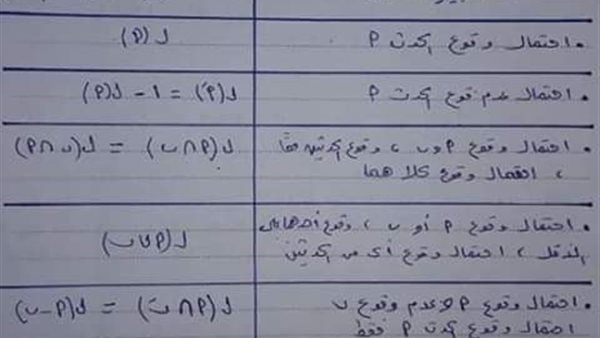 • احتمال وقوع الحدث P
ل (P)
• احتمال عدم قوع الحدث P
ل(P̄) = 1 - ل(P)
• احتمال وقوع P و ب ، وقوع الحدثين معًا
، احتمال وقوع كلا هما
ل(P∩ب) = ل(ب∩P)
• احتمال وقوع P أو ب ، وقوع أحدهما على
الأقل ، احتمال وقوع أى من الحدثين
ل(P∪ب)
• احتمال وقوع P وعدم وقوع ب
احتمال وقوع الحدث P فقط
ل(P∩ب̄) = ل(P-ب)